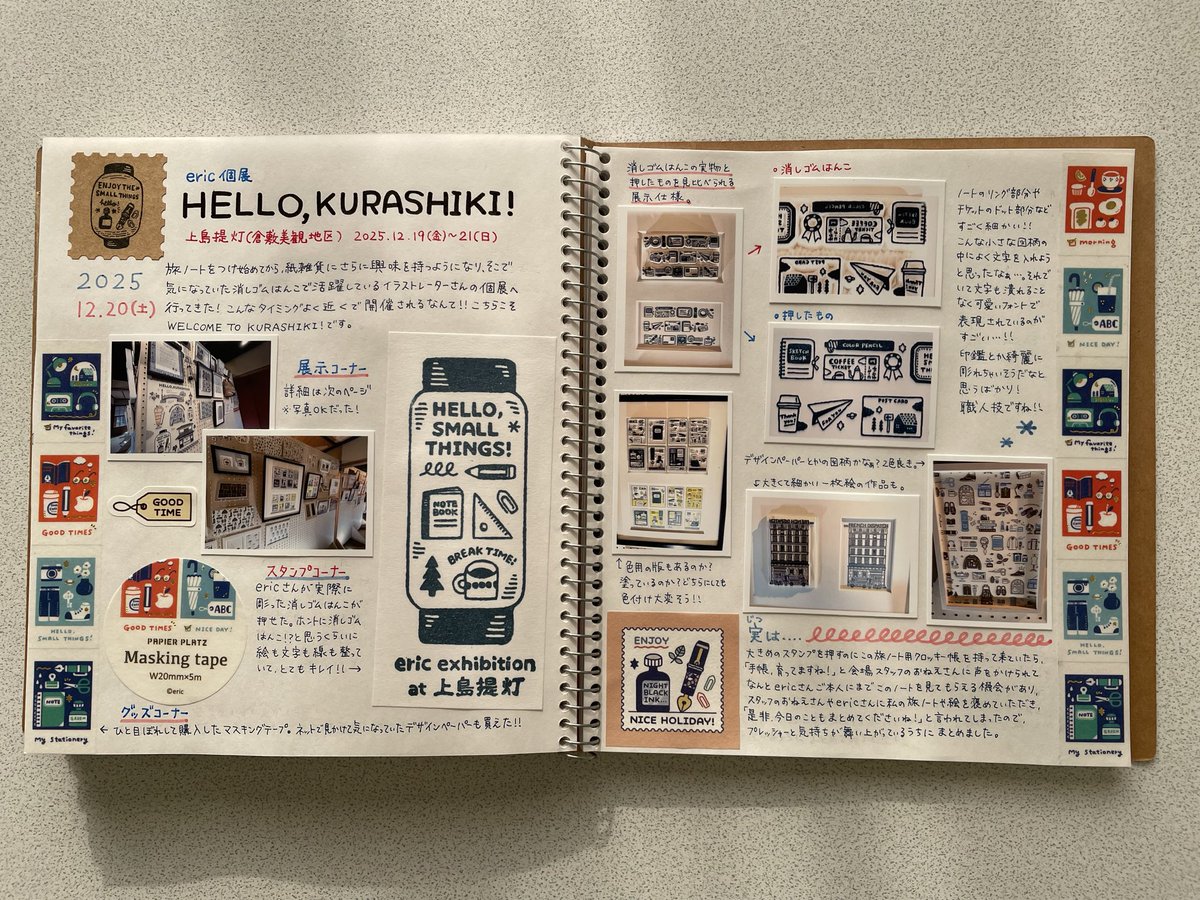 ENJOY THE
SMALL THINGS
hello!
eric個展
HELLO, KURASHIKI!
上島提灯(倉敷美観地区) 2025.12.19(金)~21(日)
2025
12.20(土)
旅ノートをつけ始めてから、紙雑貨にさらに興味を持つようになり、そこで
気になっていた消しゴムはんこで活躍しているイラストレーターさんの個展へ
行ってきた!こんなタイミングよく近くで開催されるなんて!!こちらこそ
WELCOME TO KURASHIKI!です。
展示コーナー
詳細は次のページ
※写真OKだった!
My favorite things!
GOOD TIMES
HELLO, SMALL THINGS!
My Stationery
GOOD
TIME
GOOD TIMES
NICE DAY!
ABC
PAPIER PLATZ
Masking tape
W20mm×5m
©eric
スタンプコーナー
ericさんが実際に
彫った消しゴムはんこが
押せた。ホントに消しゴム
はんこ!?と思うくらいに
絵も文字も線も整って
いて、とてもキレイ!!→
グッズコーナー
←ひと目ぼれして購入したマスキングテープ。ネットで見かけて気になっていたデザインペーパーも買えた!!
HELLO,
SMALL
THINGS!
NOTE
BOOK
BREAK TIME!
eric exhibition
at 上島提灯
消しゴムはんこの実物と
押したものを見比べられる
展示仕様。
○消しゴムはんこ
○押したもの
SKETCH
BOOK
COLOR PENCIL
COFFEE
TICKET
POST CARD
Thank
you
FOR YOU
ノートのリング部分や
チケットのドット部分など
すごく細かい!!
こんな小さな図柄の
中によく文字を入れよう
と思ったなぁ…。それで
いて文字も潰れるこ
となく可愛いフォントで
表現されているのが
すごい…!!
印鑑とか綺麗に
彫れちゃいそうだなと
思うばかり!
職人技ですね!!
デザインペーパーとかの図柄かなぁ?2色良き。→
↓大きくて細かい一枚絵の作品も。
↑色用の版もあるのか?
塗っているのか?どちらにしても
色付け大変そう!!
ENJOY
NIGHT
BLACK
INK...
NICE HOLIDAY!
じつ
実は....
大きめのスタンプを押すのにこの旅ノート用クロッキー帳を持って来ていたら、
「手帳、育ってますね!」と会場スタッフのおねえさんに声をかけられて
なんとericさんご本人にまでこのノートを見てもらえる機会があり、
スタッフのおねえさんやericさんに私の旅ノートや絵を褒めていただき、
「是非、今日のこともまとめてくださいね!」と言われてしまったので、
プレッシャーと気持ちが舞い上がっているうちにまとめました。
morning
ABC
NICE DAY!
My favorite things!
GOOD TIMES
HELLO, SMALL THINGS!
NOTE
My Stationery